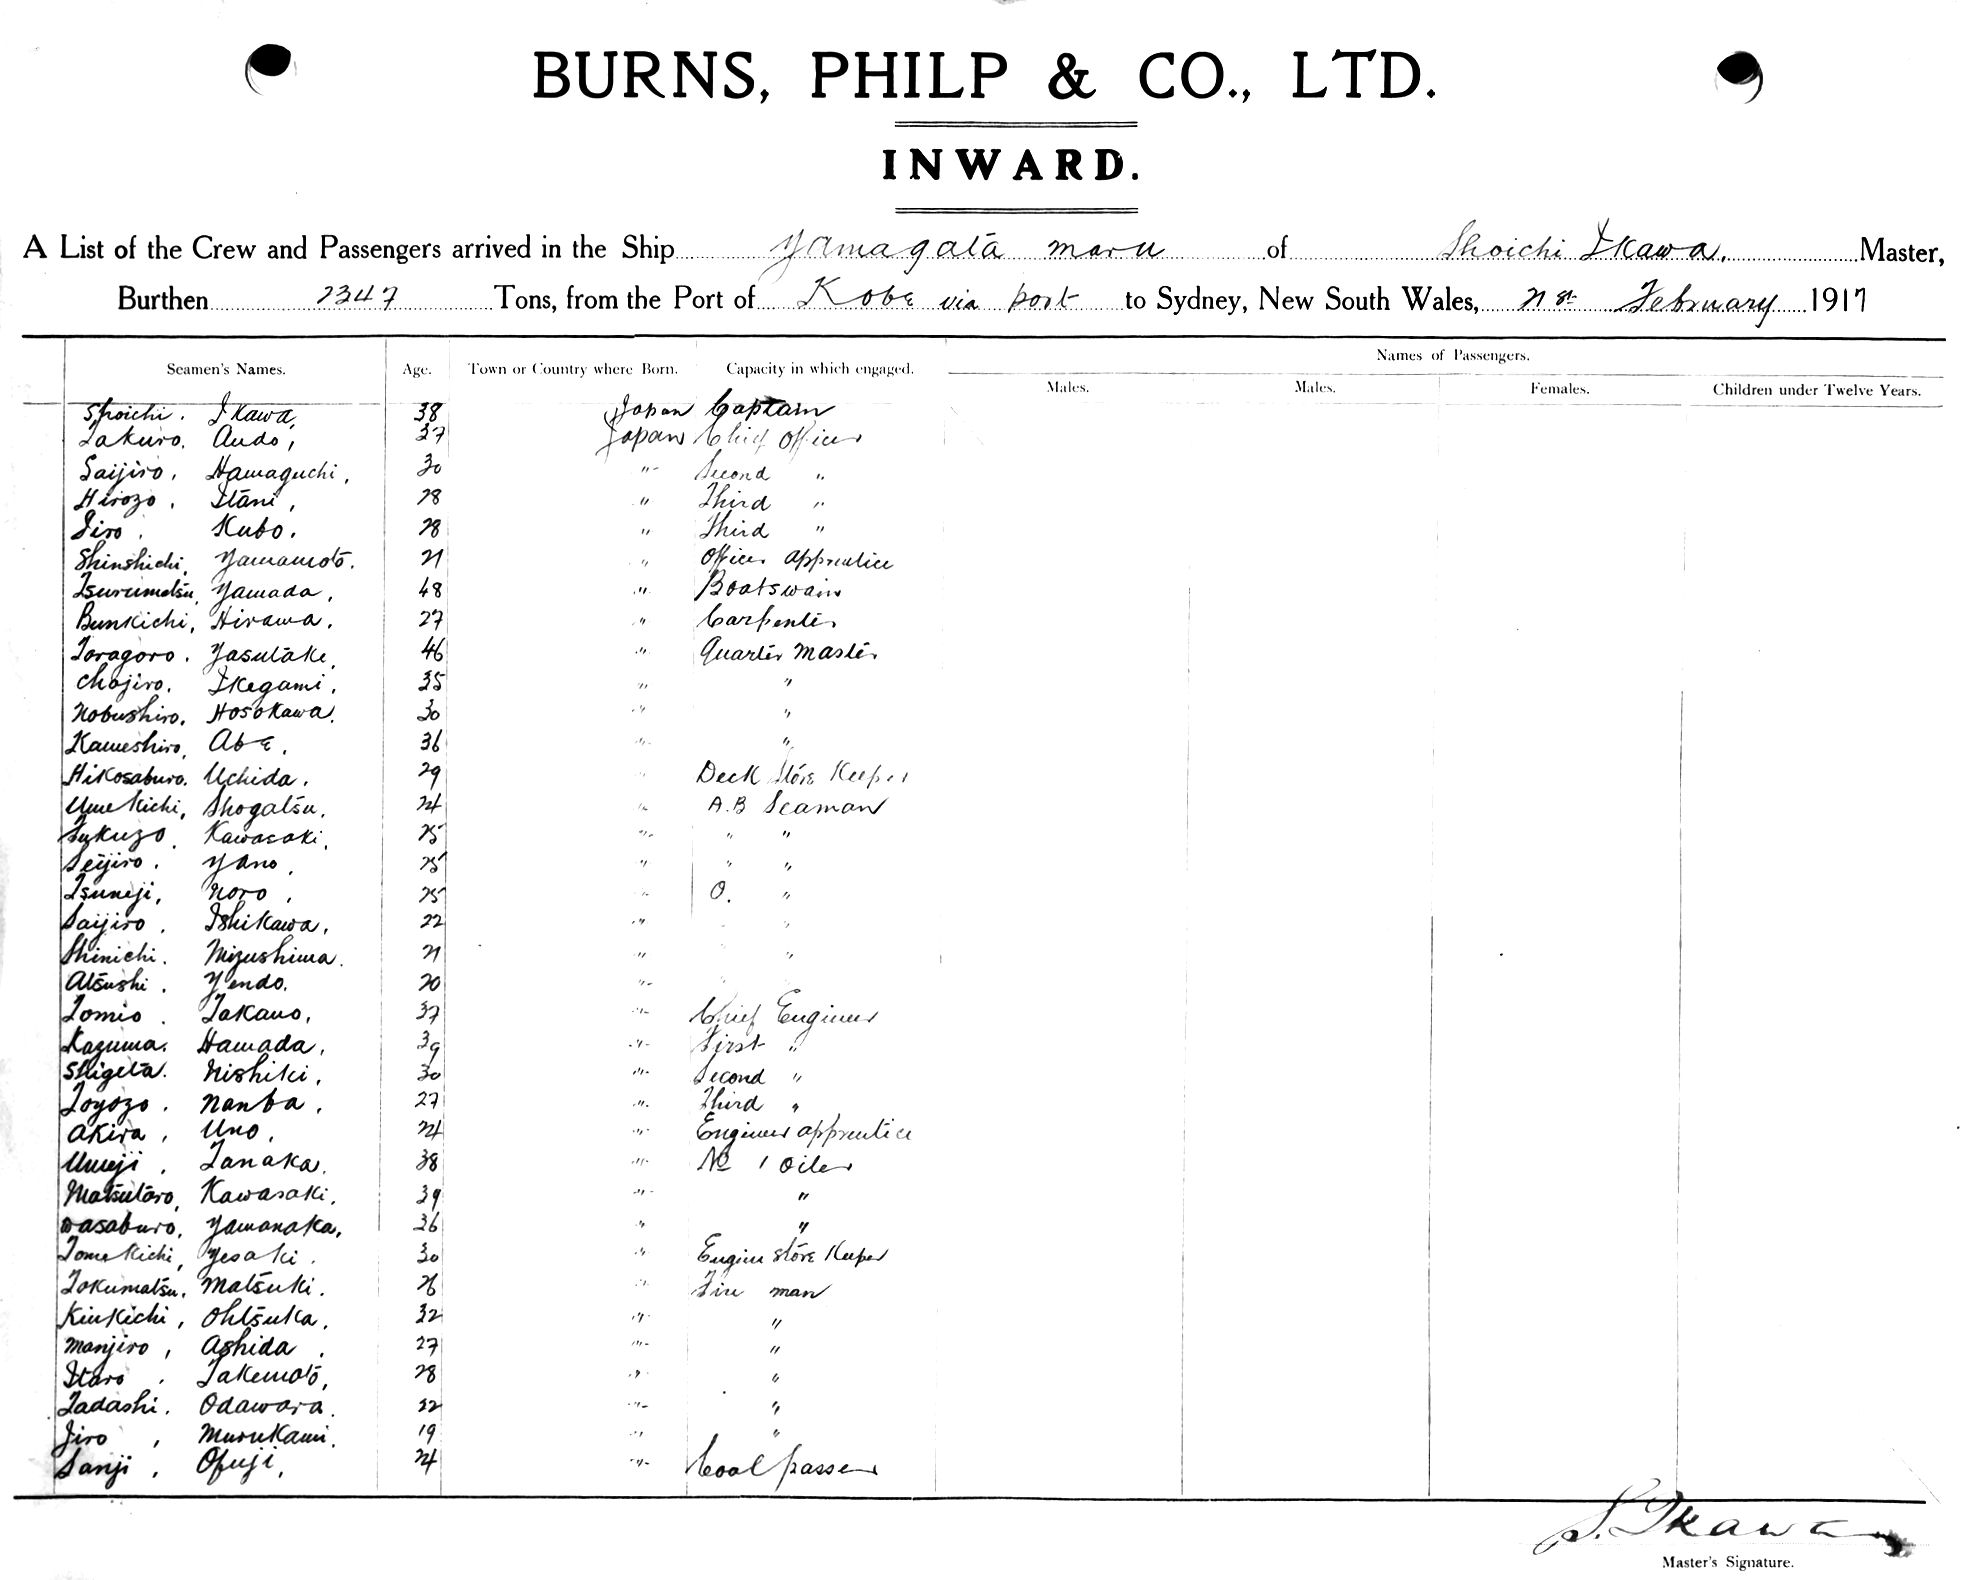 BURNS, PHILP & CO., LTD.
INWARD.
A List of the Crew and Passengers arrived in the Ship Yamagata Maru of Shoichi Ikawa. Master,
Burthen 2347 Tons, from the Port of Kobe via port to Sydney, New South Wales, 21st February 1917
Names of Passengers.
Seamen's Names. Age. Town or Country where Born. Capacity in which engaged. Males. Males. Females. Children under Twelve Years.
Shoichi. Ikawa, 38 Japan Captain
Takuro. Ando, 37 Japan Chief Officer
Saijiro, Hamaguchi, 30 " Second "
Hirozo, Itani, 28 " Third "
Jiro, Kubo. 28 " Third "
Shinshichi, Yamamoto. 21 " Officer apprentice
Tsurumatsu, Yamada, 48 " Boatswain
Bunkichi, Hirawa. 27 " Carpenter
Toragoro. Yasutake, 46 " Quarter Master
Chojiro. Ikegami, 35 " "
Nobushiro, Hosokawa. 30 " "
Kameshiro, Abe, 36 " "
Hikosaburo. Uchida, 29 " Deck Store Keeper
Umekichi, Shogatsu, 24 " A.B Seaman
Kawasaki, 25 " " "
Seijiro, Yano, 25 " " "
Tsuneji, Noro, 25 " O. "
Saijiro, Ishikawa, 22 " "
Shinichi. Mizushima. 21 " "
Atsushi. Yendo. 20 "
Tomio. Takano, 37 " Chief Engineer
Kazuma. Hamada, 39 " First "
Shigeta. Nishiki, 30 " Second "
Toyozo. Nanba, 27 " Third "
Akira, Uno, 24 " Engineer apprentice
Umeji, Tanaka. 38 " No 1 Oiler
Matsutaro, Kawasaki, 39 " "
Wasaburo, Yamanaka, 36 " "
Tomekichi, Yesaki. 30 " Engine Store Keeper
Tokumatsu, Matsuki. 26 " Fire man
Kinkichi, Ohtsuka, 32 " "
Manjiro, Ashida, 27 " "
Itaro, Takemoto, 28 " "
Tadashi. Odawara. 22 " "
Jiro, Murukami. 19 " "
Sanji, Ofuji, 24 " Coal passer
S. Ikawa
Master's Signature.